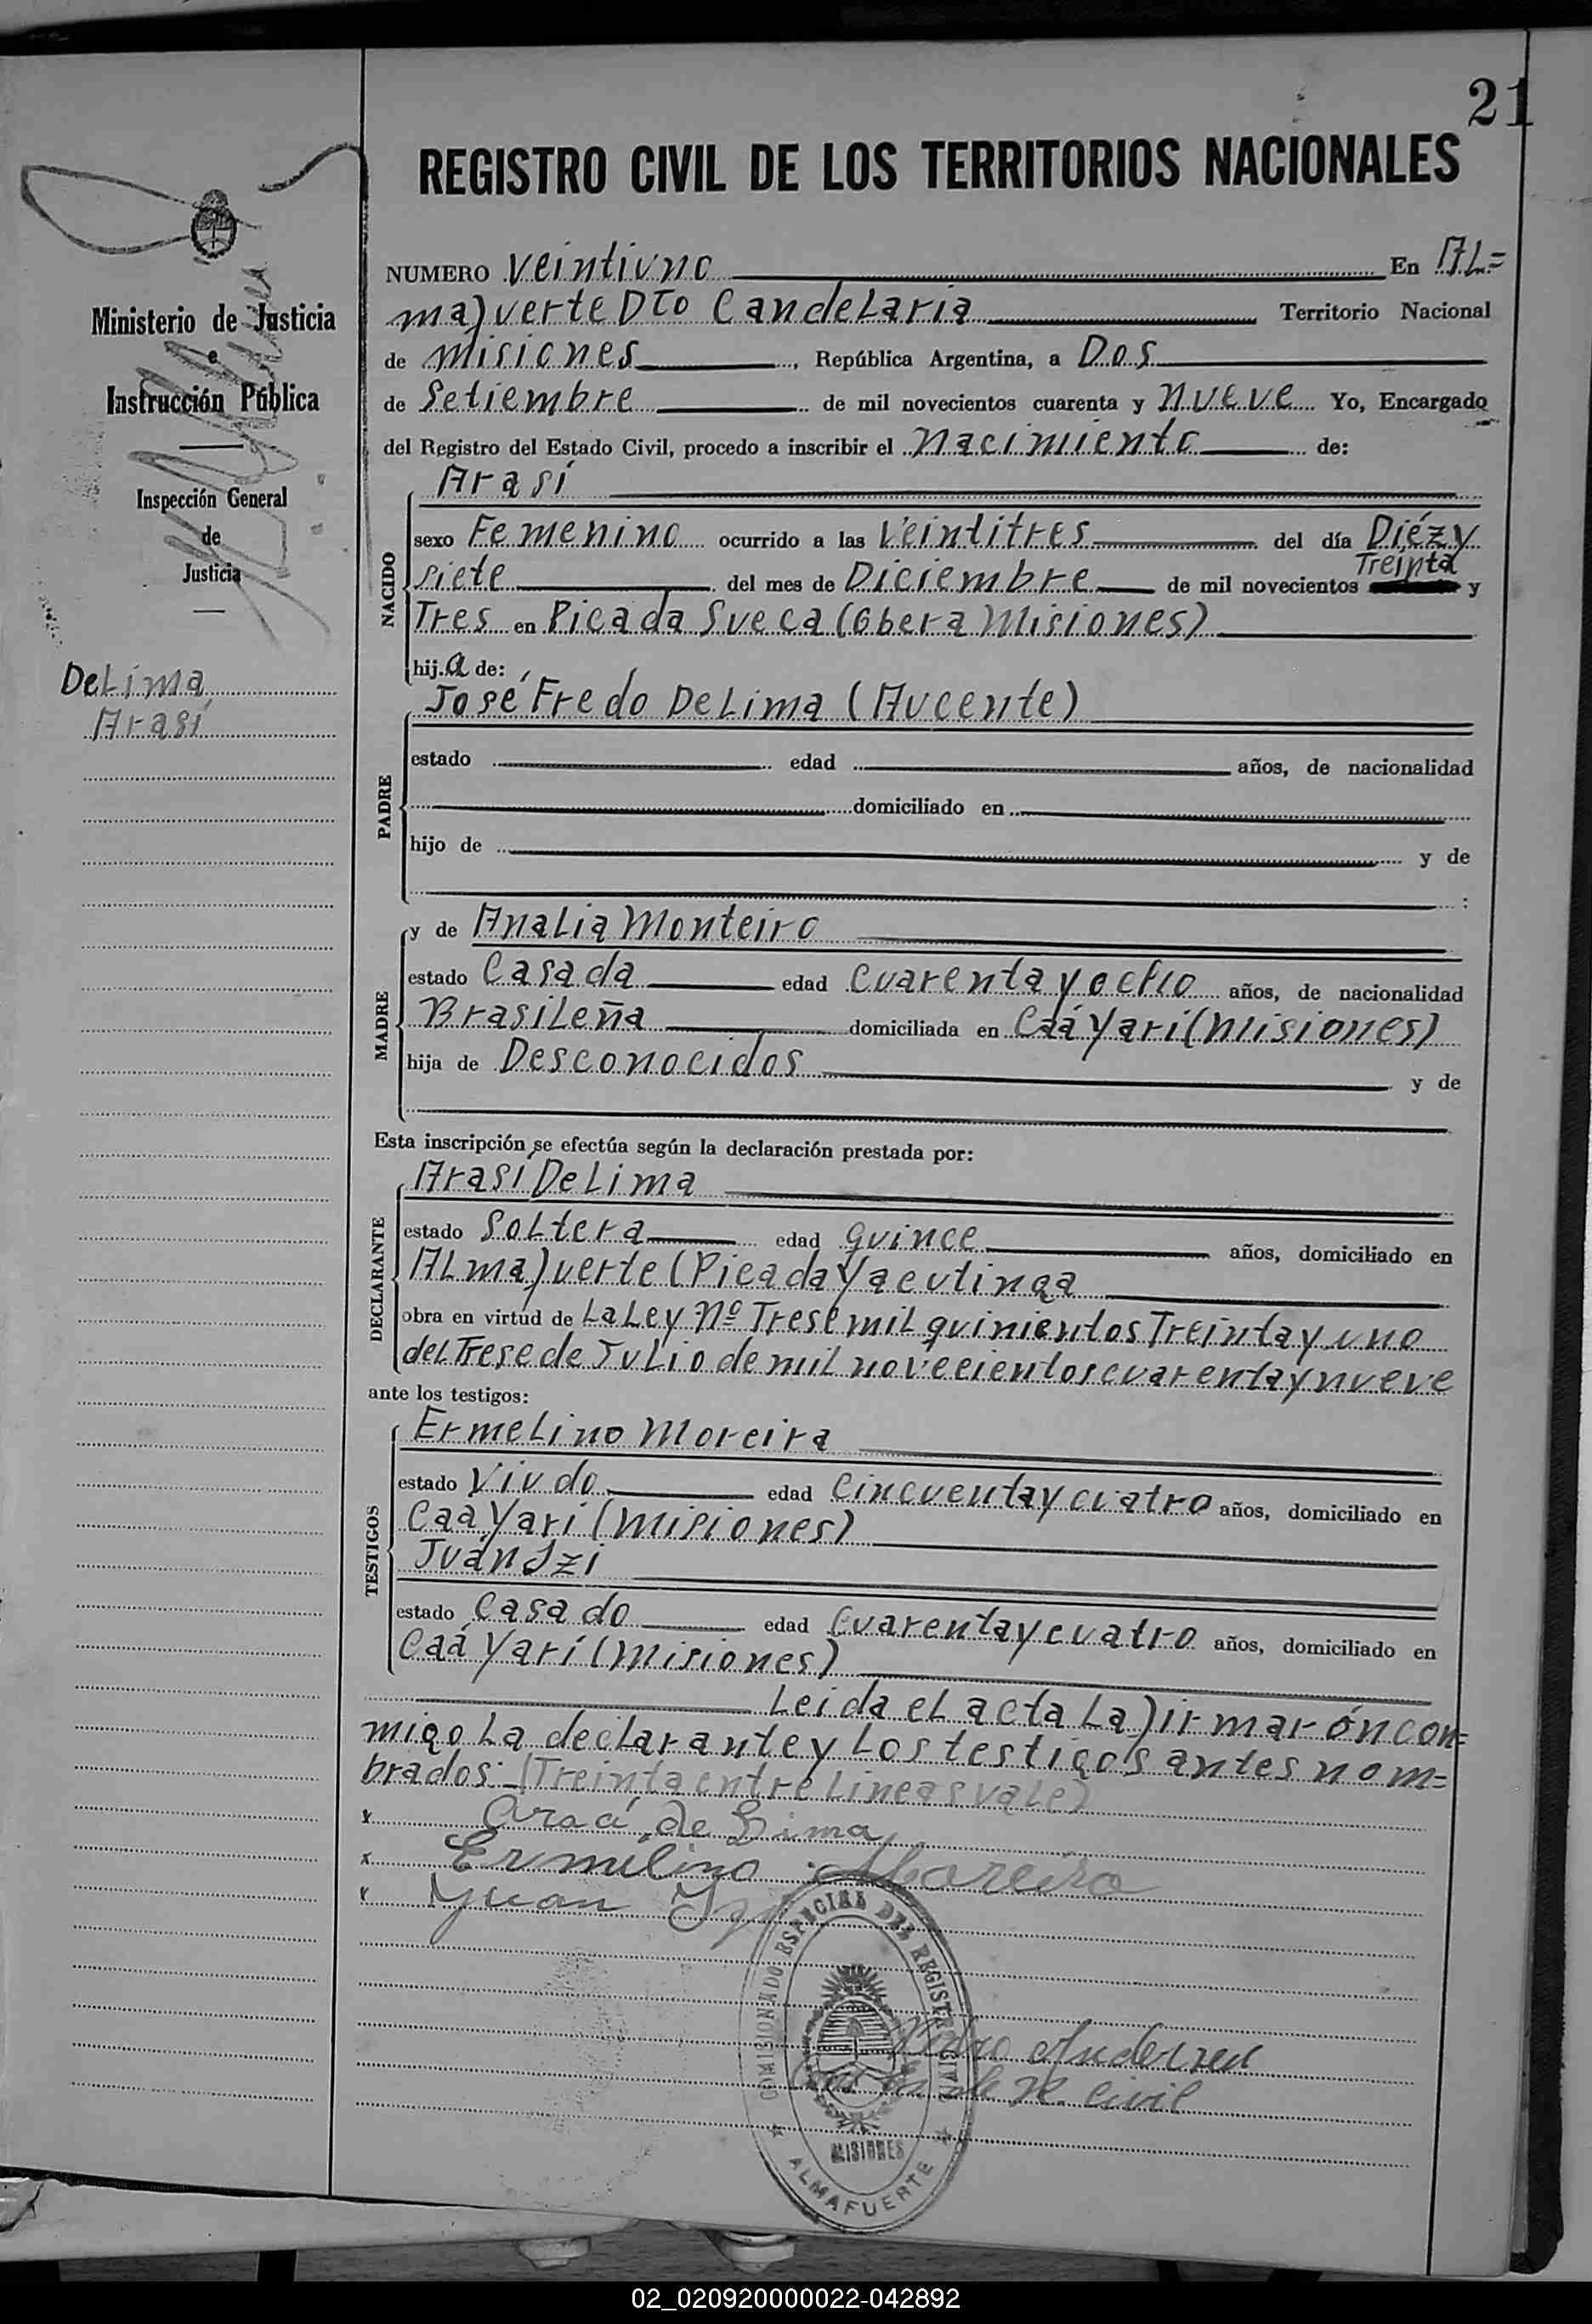 21
REGISTRO CIVIL DE LOS TERRITORIOS NACIONALES
Ministerio de Justicia
e
Instrucción Pública
Inspección General
de
Justicia
DeLima
Arasí
NUMERO veintiuno En AL=
mafuerte Dto CandeLaria Territorio Nacional
de misiones, República Argentina, a Dos
de Setiembre de mil novecientos cuarenta y nueve Yo, Encargado
del Registro del Estado Civil, procedo a inscribir el nacimiento de:
NACIDO
Arasí
sexo Femenino ocurrido a las veintitres del día Diézy
Treinta
siete del mes de Diciembre de mil novecientos y
Tres en Picada Sueca (Obera Misiones)
hij.a de:
PADRE
José Fredo DeLima (Aucente)
estado edad años, de nacionalidad
domiciliado en
hijo de y de
:
MADRE
y de AnaLia Monteiro
estado Casada edad cuarenta y ocho años, de nacionalidad
BrasiLeña domiciliada en Caá Yarí (Misiones)
hija de Desconocidos y de
Esta inscripción se efectúa según la declaración prestada por:
DECLARANTE
Arasí DeLima
estado SoLtera edad quince años, domiciliado en
ALmafuerte (Picada Yacutinga
obra en virtud de La Ley Nº Trese mil quinientos Treinta y uno
deL Trese de JuLio de mil novecientos cuarenta y nueve
ante los testigos:
TESTIGOS
ErmeLino Moreira
estado Viudo edad Cincuenta y cuatro años, domiciliado en
Caa Yarí (Misiones)
Juan Izi
estado Casado edad Cuarenta y cuatro años, domiciliado en
Caá Yarí (Misiones)
Leida eL acta La firmarón con=
migo La declarante y Los testigos antes nom=
brados (Treinta entre Lineas vaLe)
x Araci de Lima
x Ermilino Moreira
x Yuan Izi
COMISIONADO ESPECIAL DEL REGISTRO CIVIL
MISIONES
ALMAFUERTE
Pedro Andersen
R. Civil
02_020920000022-042892